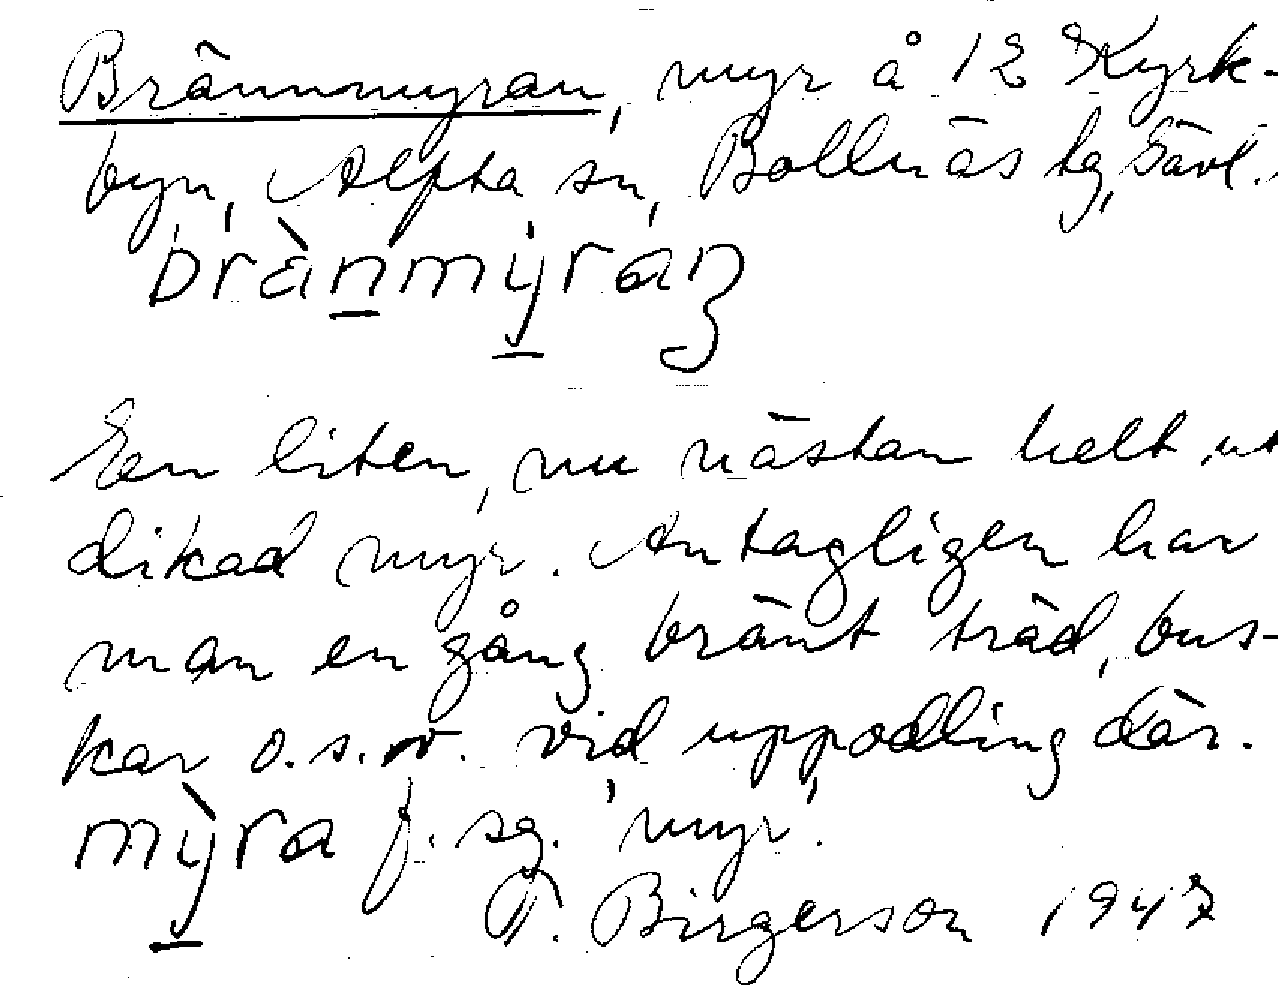 Brännmyran, myr å 12 Kyrk-
byn, Alfta sn, Bollnäs tg, Gävl.
brànmyran
En liten, nu nästan helt ut
dikad myr. Antagligen har
man en gång bränt träd, bus-
kar o.s.v. vid uppodling där.
mỳra f. sg. 'myr'.
T. Birgerson 1947